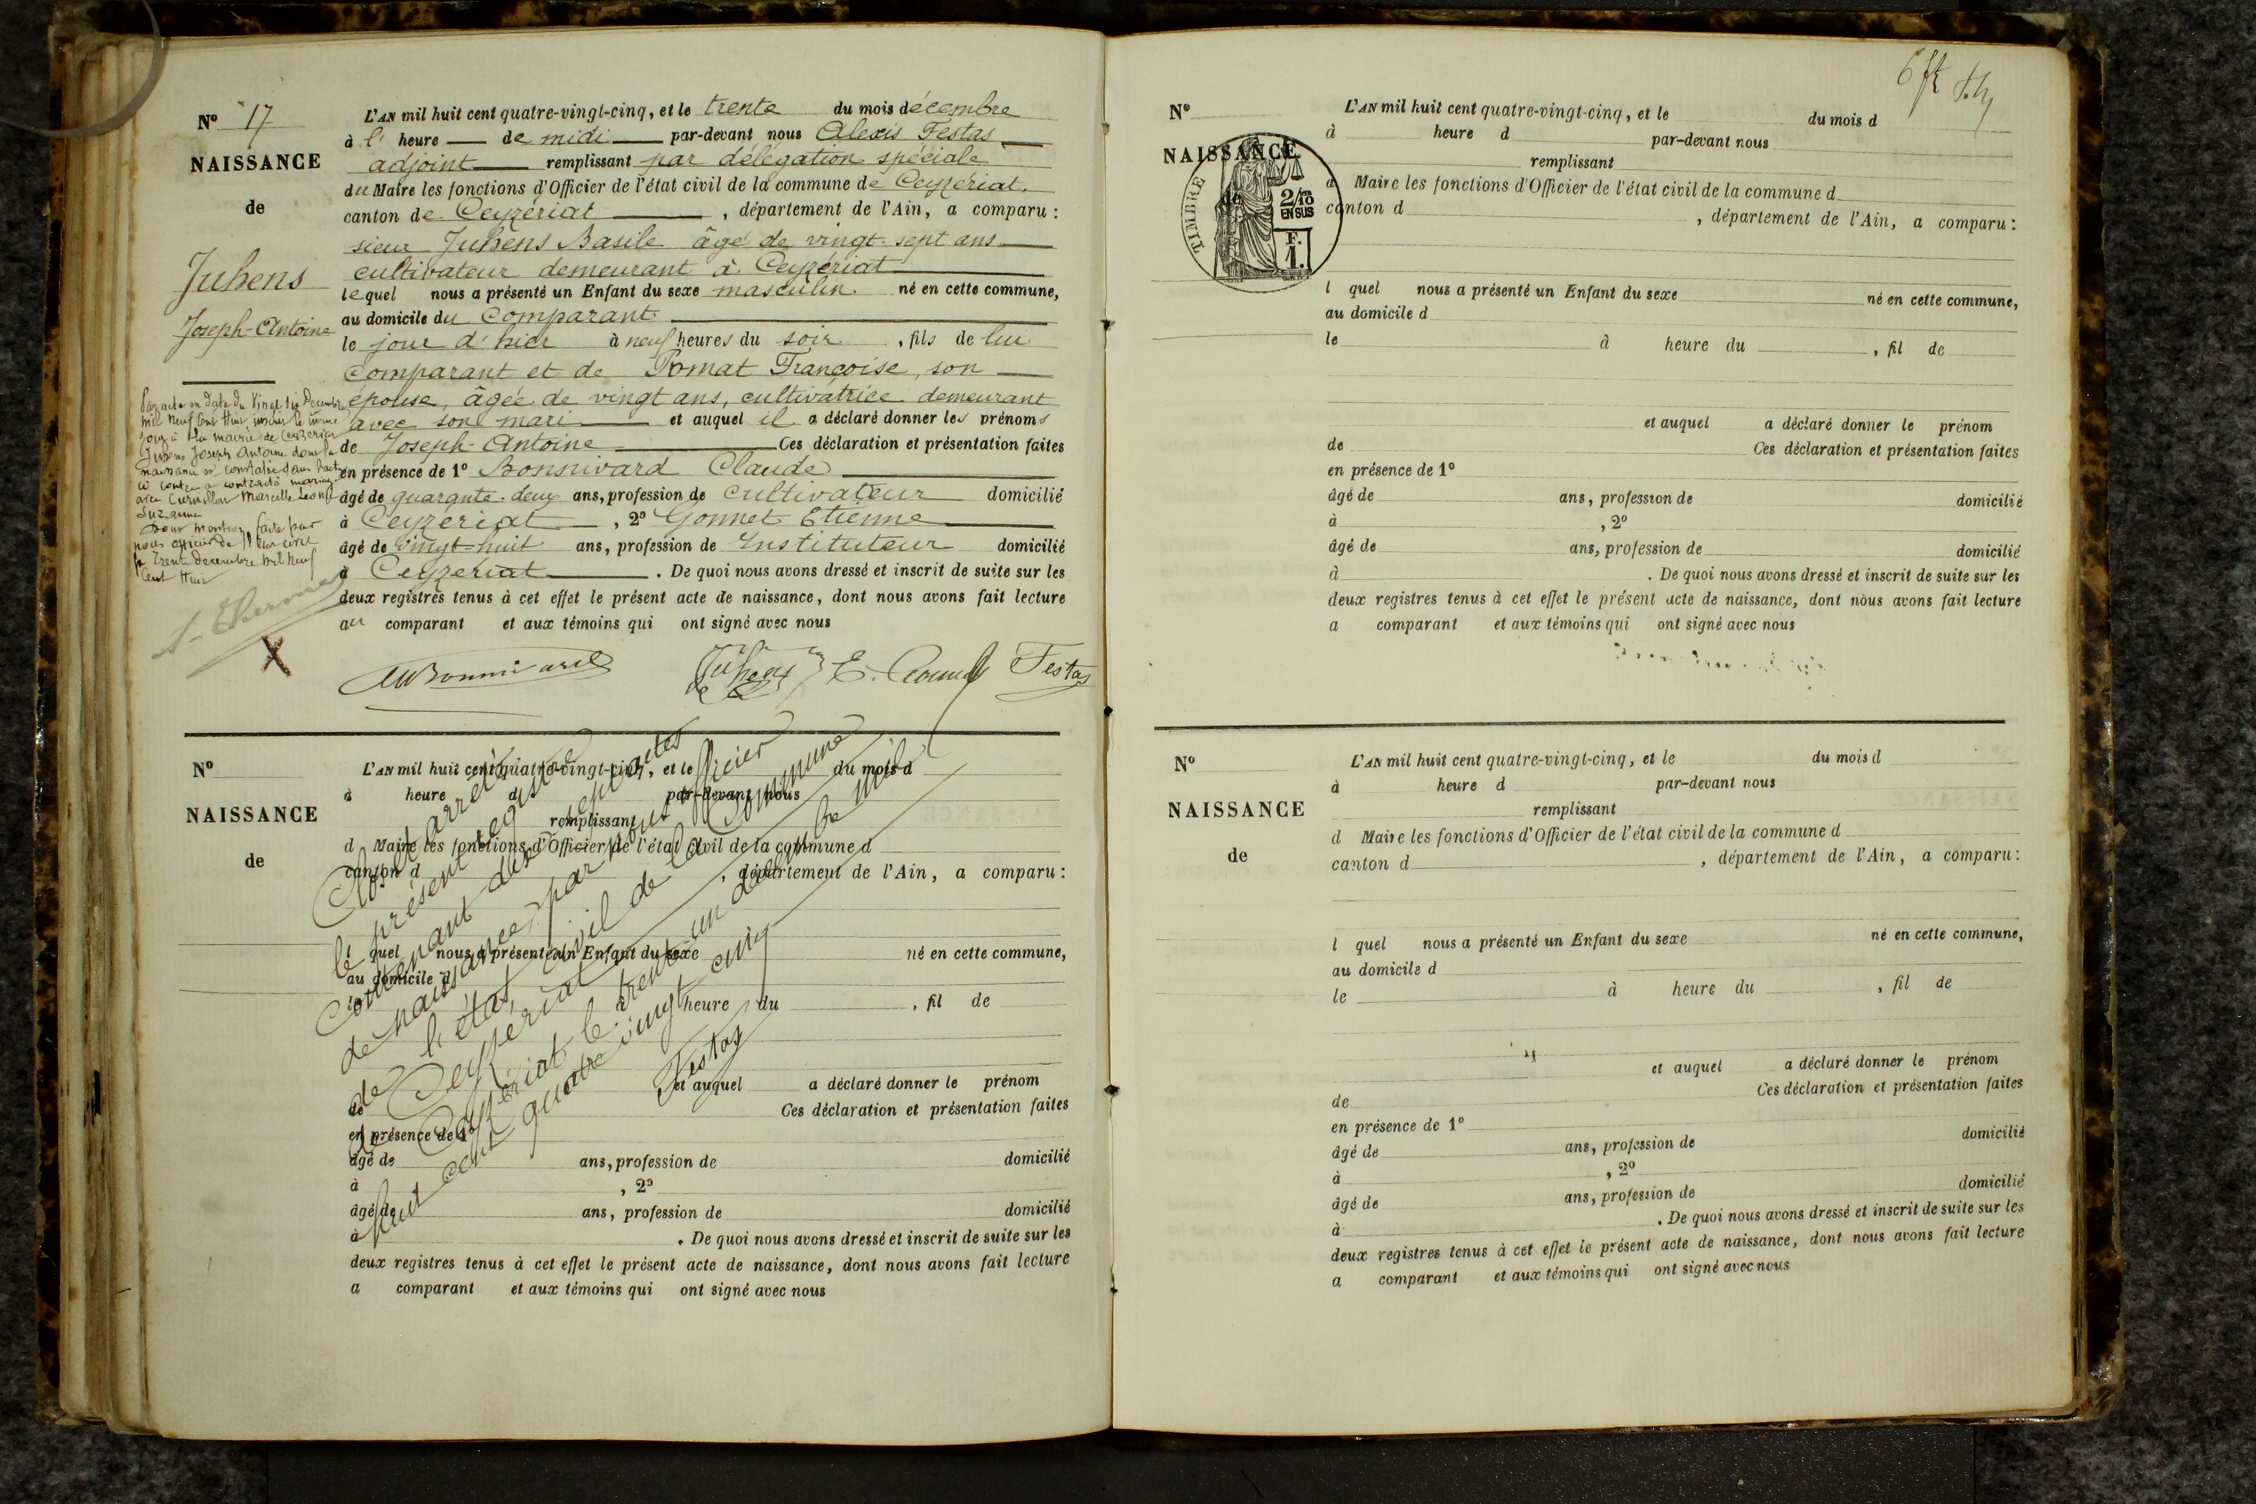 N° 17
NAISSANCE
de
Juhens
Joseph-Antoine
L'AN mil huit cent quatre-vingt-cinq, et le trente du mois décembre
à l' heure de midi par-devant nous Alexis Festas
adjoint remplissant par délégation spéciale
du Maire les fonctions d'Officier de l'état civil de la commune de Ceyzériat.
canton de Ceyzériat, département de l'Ain, a comparu :
sieur Juhens Basile âgé de vingt-sept ans
cultivateur demeurant à Ceyzériat
lequel nous a présenté un Enfant du sexe masculin. né en cette commune,
au domicile du comparant
le jour d'hier à neuf heures du soir, fils de lui
comparant et de Pomat Françoise, son
épouse, âgée de vingt ans, cultivatrice demeurant
avec son mari et auquel il a déclaré donner les prénoms
de Joseph-Antoine Ces déclaration et présentation faites
en présence de 1° Bonnivard Claude
âgé de quarante-deux ans, profession de cultivateur domicilié
à Ceyzériat, 2° Gonnet Etienne
âgé de vingt-huit ans, profession de Instituteur domicilié
à Ceyzeriat. De quoi nous avons dressé et inscrit de suite sur les
deux registres tenus à cet effet le présent acte de naissance, dont nous avons fait lecture
au comparant et aux témoins qui ont signé avec nous
Par acte en date du Vingt six Decembre
mil neuf cent huit, inscrit le même
jour à la mairie de Ceyzeriat
Juhens Joseph Antoine dont la
naissance est constatée dans l'acte
ci contre a contracté mariage
avec Curvillon Marcelle Leonie
Suzanne
Pour mention faite par
nous officier de l'Etat civil
le Trente decembre mil neuf
Cent huit
Bonnivard Juhens E. Festas
N°
NAISSANCE
de
L'AN mil huit cent quatre-vingt-cinq, et le du mois d
à heure d par-devant nous
remplissant
d Maire les fonctions d'Officier de l'état civil de la commune d
canton d , département de l'Ain, a comparu :
l quel nous a présenté un Enfant du sexe né en cette commune,
au domicile d
le à heure du , fil de
et auquel a déclaré donner le prénom
de Ces déclaration et présentation faites
en présence de 1°
âgé de ans, profession de domicilié
à , 2°
âgé de ans, profession de domicilié
à . De quoi nous avons dressé et inscrit de suite sur les
deux registres tenus à cet effet le présent acte de naissance, dont nous avons fait lecture
a comparant et aux témoins qui ont signé avec nous
Clos et arrêté
le présent registre
contenant dix sept actes
de naissances, par nous officier
de l'état civil de la Commune
de Ceyzériat
A Ceyzériat le trente un décembre mil
huit cent quatre vingt cinq
Festas
N°
NAISSANCE
de
TIMBRE
2/10
EN SUS
F.
1.
L'AN mil huit cent quatre-vingt-cinq, et le du mois d
à heure d par-devant nous
remplissant
d Maire les fonctions d'Officier de l'état civil de la commune d
canton d , département de l'Ain, a comparu :
l quel nous a présenté un Enfant du sexe né en cette commune,
au domicile d
le à heure du , fil de
et auquel a déclaré donner le prénom
de Ces déclaration et présentation faites
en présence de 1°
âgé de ans, profession de domicilié
à , 2°
âgé de ans, profession de domicilié
à . De quoi nous avons dressé et inscrit de suite sur les
deux registres tenus à cet effet le présent acte de naissance, dont nous avons fait lecture
a comparant et aux témoins qui ont signé avec nous
N°
NAISSANCE
de
L'AN mil huit cent quatre-vingt-cinq, et le du mois d
à heure d par-devant nous
remplissant
d Maire les fonctions d'Officier de l'état civil de la commune d
canton d , département de l'Ain, a comparu :
l quel nous a présenté un Enfant du sexe né en cette commune,
au domicile d
le à heure du , fil de
et auquel a déclaré donner le prénom
de Ces déclaration et présentation faites
en présence de 1°
âgé de ans, profession de domicilié
à , 2°
âgé de ans, profession de domicilié
à . De quoi nous avons dressé et inscrit de suite sur les
deux registres tenus à cet effet le présent acte de naissance, dont nous avons fait lecture
a comparant et aux témoins qui ont signé avec nous